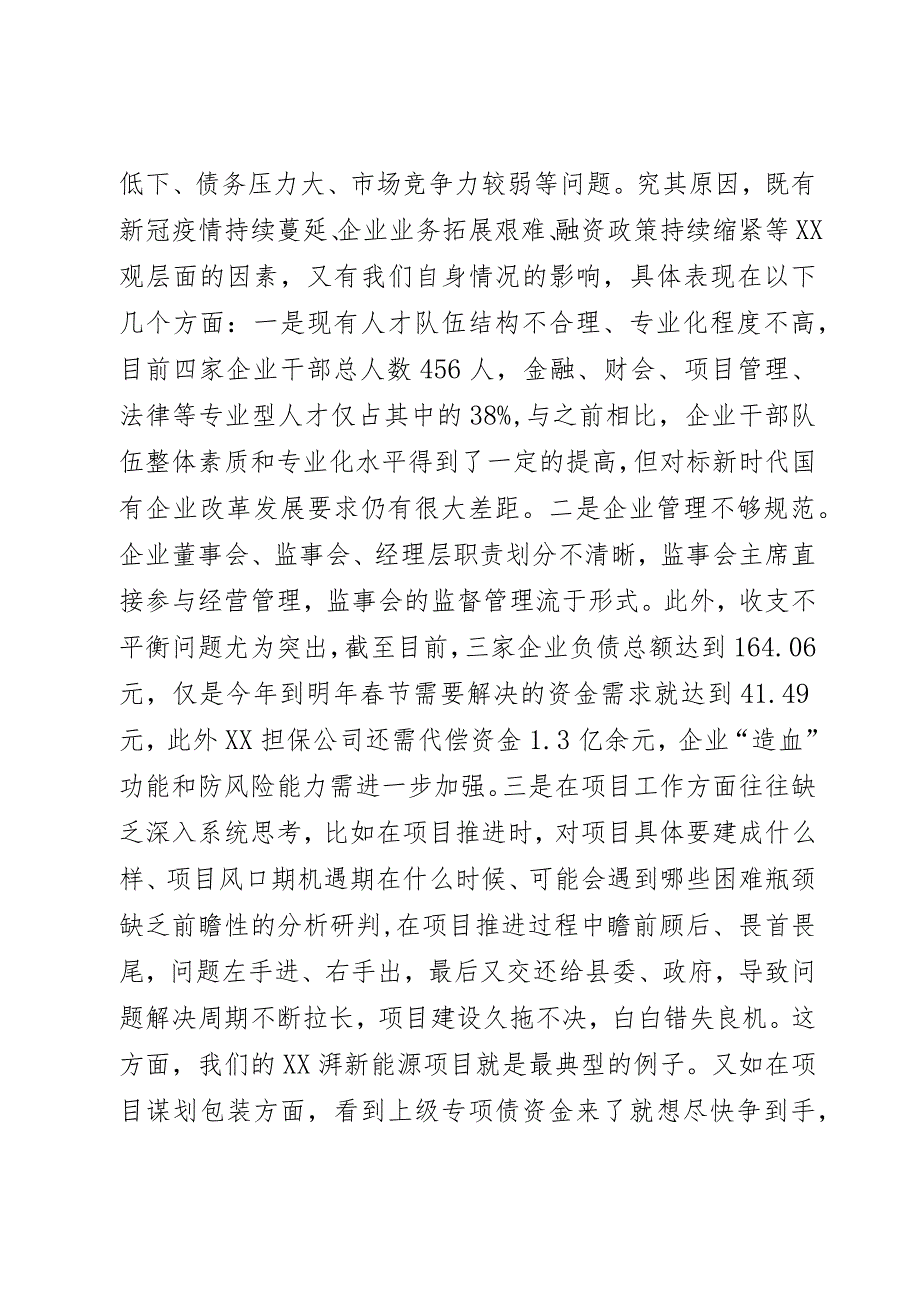 低下、债务压力大、市场竞争力较弱等问题。究其原因，既有
新冠疫情持续蔓延、企业业务拓展艰难、融资政策持续缩紧等XX
观层面的因素，又有我们自身情况的影响，具体表现在以下
几个方面：一是现有人才队伍结构不合理、专业化程度不高，
目前四家企业干部总人数456人，金融、财会、项目管理、
法律等专业型人才仅占其中的38%,与之前相比，企业干部队
伍整体素质和专业化水平得到了一定的提高,但对标新时代国
有企业改革发展要求仍有很大差距。二是企业管理不够规范。
企业董事会、监事会、经理层职责划分不清晰，监事会主席直
接参与经营管理，监事会的监督管理流于形式。此外，收支不
平衡问题尤为突出，截至目前，三家企业负债总额达到164.06
元，仅是今年到明年春节需要解决的资金需求就达到41.49
元，此外XX担保公司还需代偿资金1.3亿余元，企业“造血”
功能和防风险能力需进一步加强。三是在项目工作方面往往缺
乏深入系统思考，比如在项目推进时，对项目具体要建成什么
样、项目风口期机遇期在什么时候、可能会遇到哪些困难瓶颈
缺乏前瞻性的分析研判,在项目推进过程中瞻前顾后、畏首畏
尾，问题左手进、右手出，最后又交还给县委、政府，导致问
题解决周期不断拉长，项目建设久拖不决，白白错失良机。这
方面，我们的XX湃新能源项目就是最典型的例子。又如在项
目谋划包装方面，看到上级专项债资金来了就想尽快争到手，